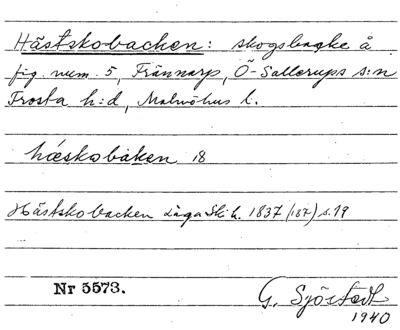 Hästskobacken: skogsbacke å
fig. num. 5, Frännarp, Ö-Sallerups s:n
Frosta h:d, Malmöhus l.
hæskobaken 18
Hästskobacken Laga Ski h. 1837 (187) s. 19
Nr 5573.
G. Sjöstedt
1940